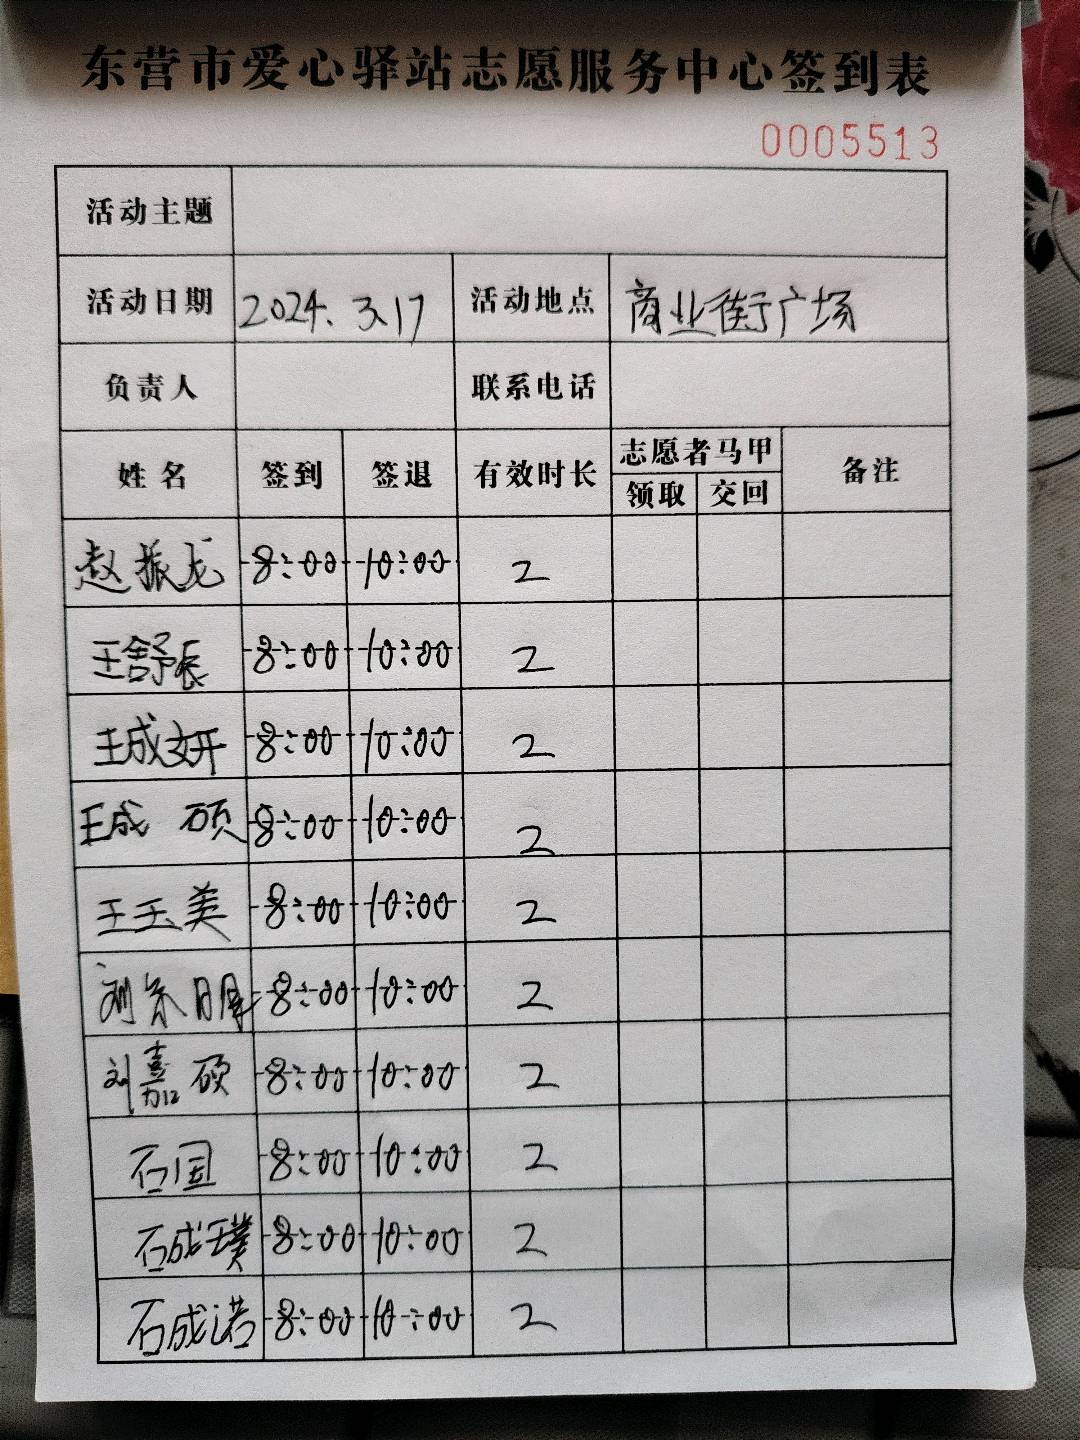 东营市爱心驿站志愿服务中心签到表
0005513
活动主题
活动日期 2024.3.17 活动地点 商业街广场
负责人 联系电话
姓名 签到 签退 有效时长 志愿者马甲 备注
领取 交回
赵振龙 8:00 10:00 2
王舒辰 8:00 10:00 2
王成妍 8:00 10:00 2
王成硕 8:00 10:00 2
王玉美 8:00 10:00 2
刘 8:00 10:00 2
刘嘉硕 8:00 10:00 2
石国 8:00 10:00 2
石成璞 8:00 10:00 2
石成诺 8:00 10:00 2